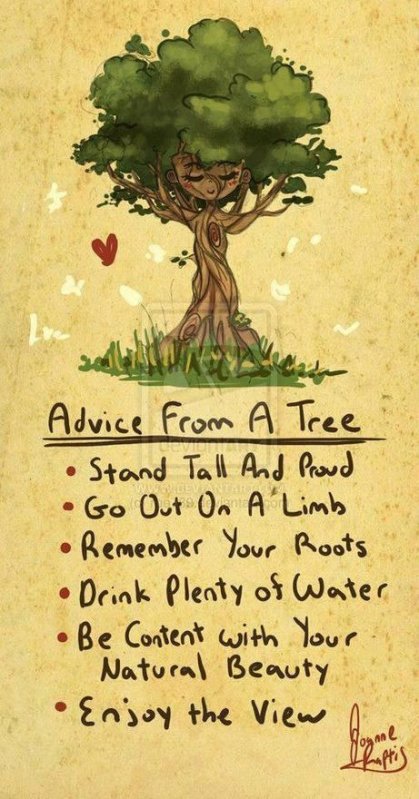 Advice From A Tree
• Stand Tall And Proud
• Go Out On A Limb
• Remember Your Roots
• Drink Plenty of Water
• Be Content with Your
Natural Beauty
• Enjoy the View
Joanne
Kraftis